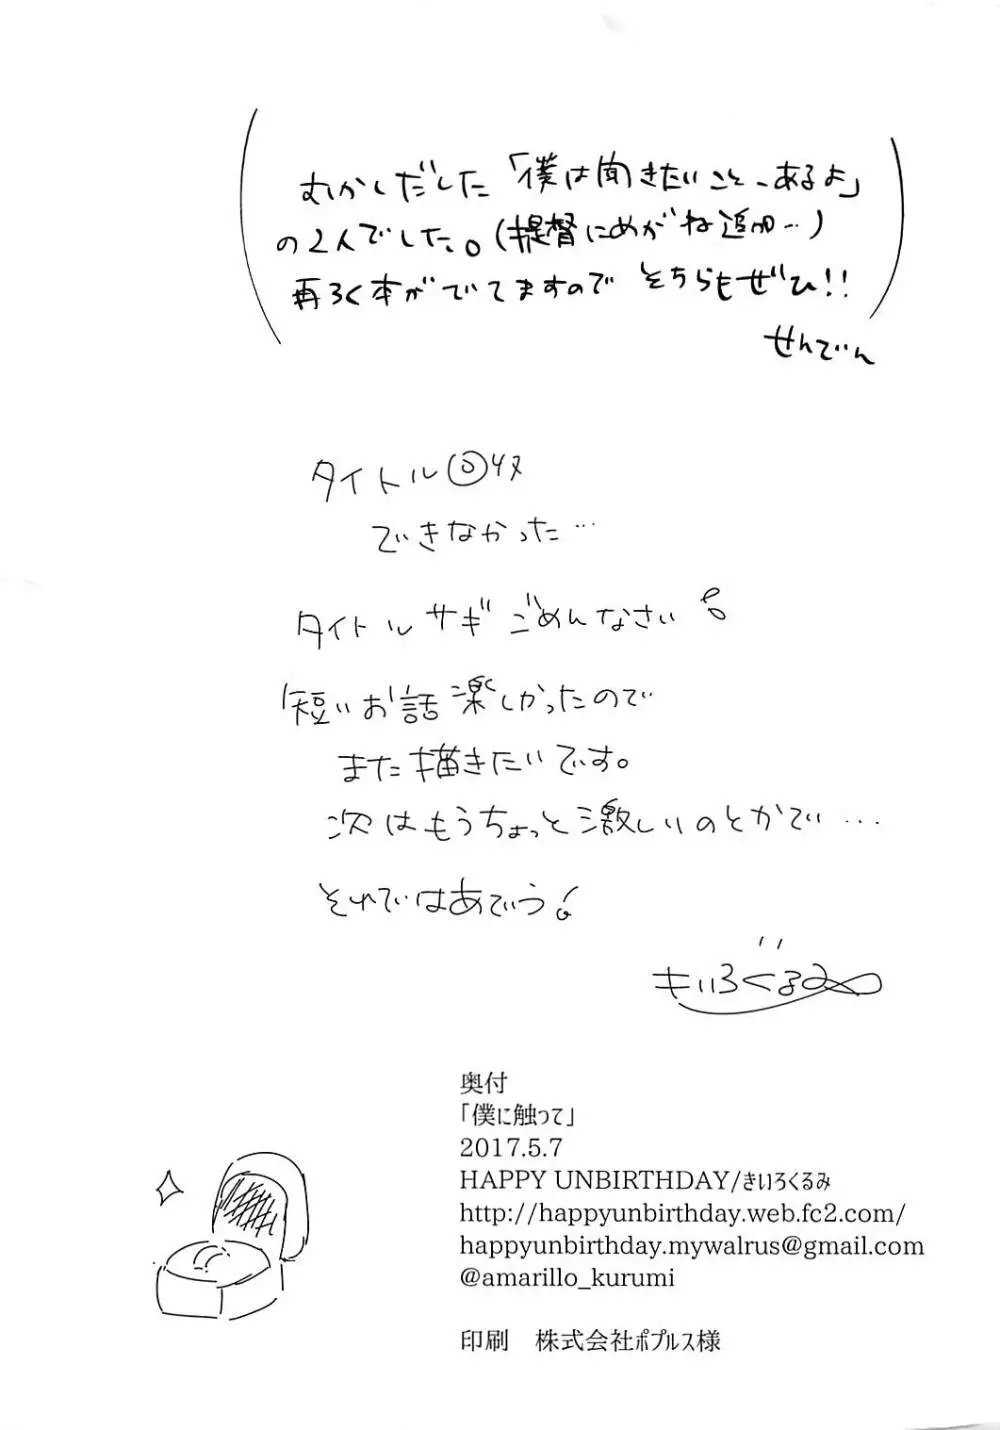 むかしだした「僕は聞きたいこと、あるよ」
の2人でした。(提督にめがね追加…)
再ろく本がでてますので そちらもぜひ!!
せんでん
タイトル回収
できなかった…
タイトルサギ ごめんなさい
短いお話 楽しかったので
また描きたいです。
次はもうちょっと激しいのとかで…
それではあでぃう
きいろくるみ
奥付
「僕に触って」
2017.5.7
HAPPY UNBIRTHDAY/きいろくるみ
http://happyunbirthday.web.fc2.com/
happyunbirthday.mywalrus@gmail.com
@amarillo_kurumi
印刷　株式会社ポプルス様